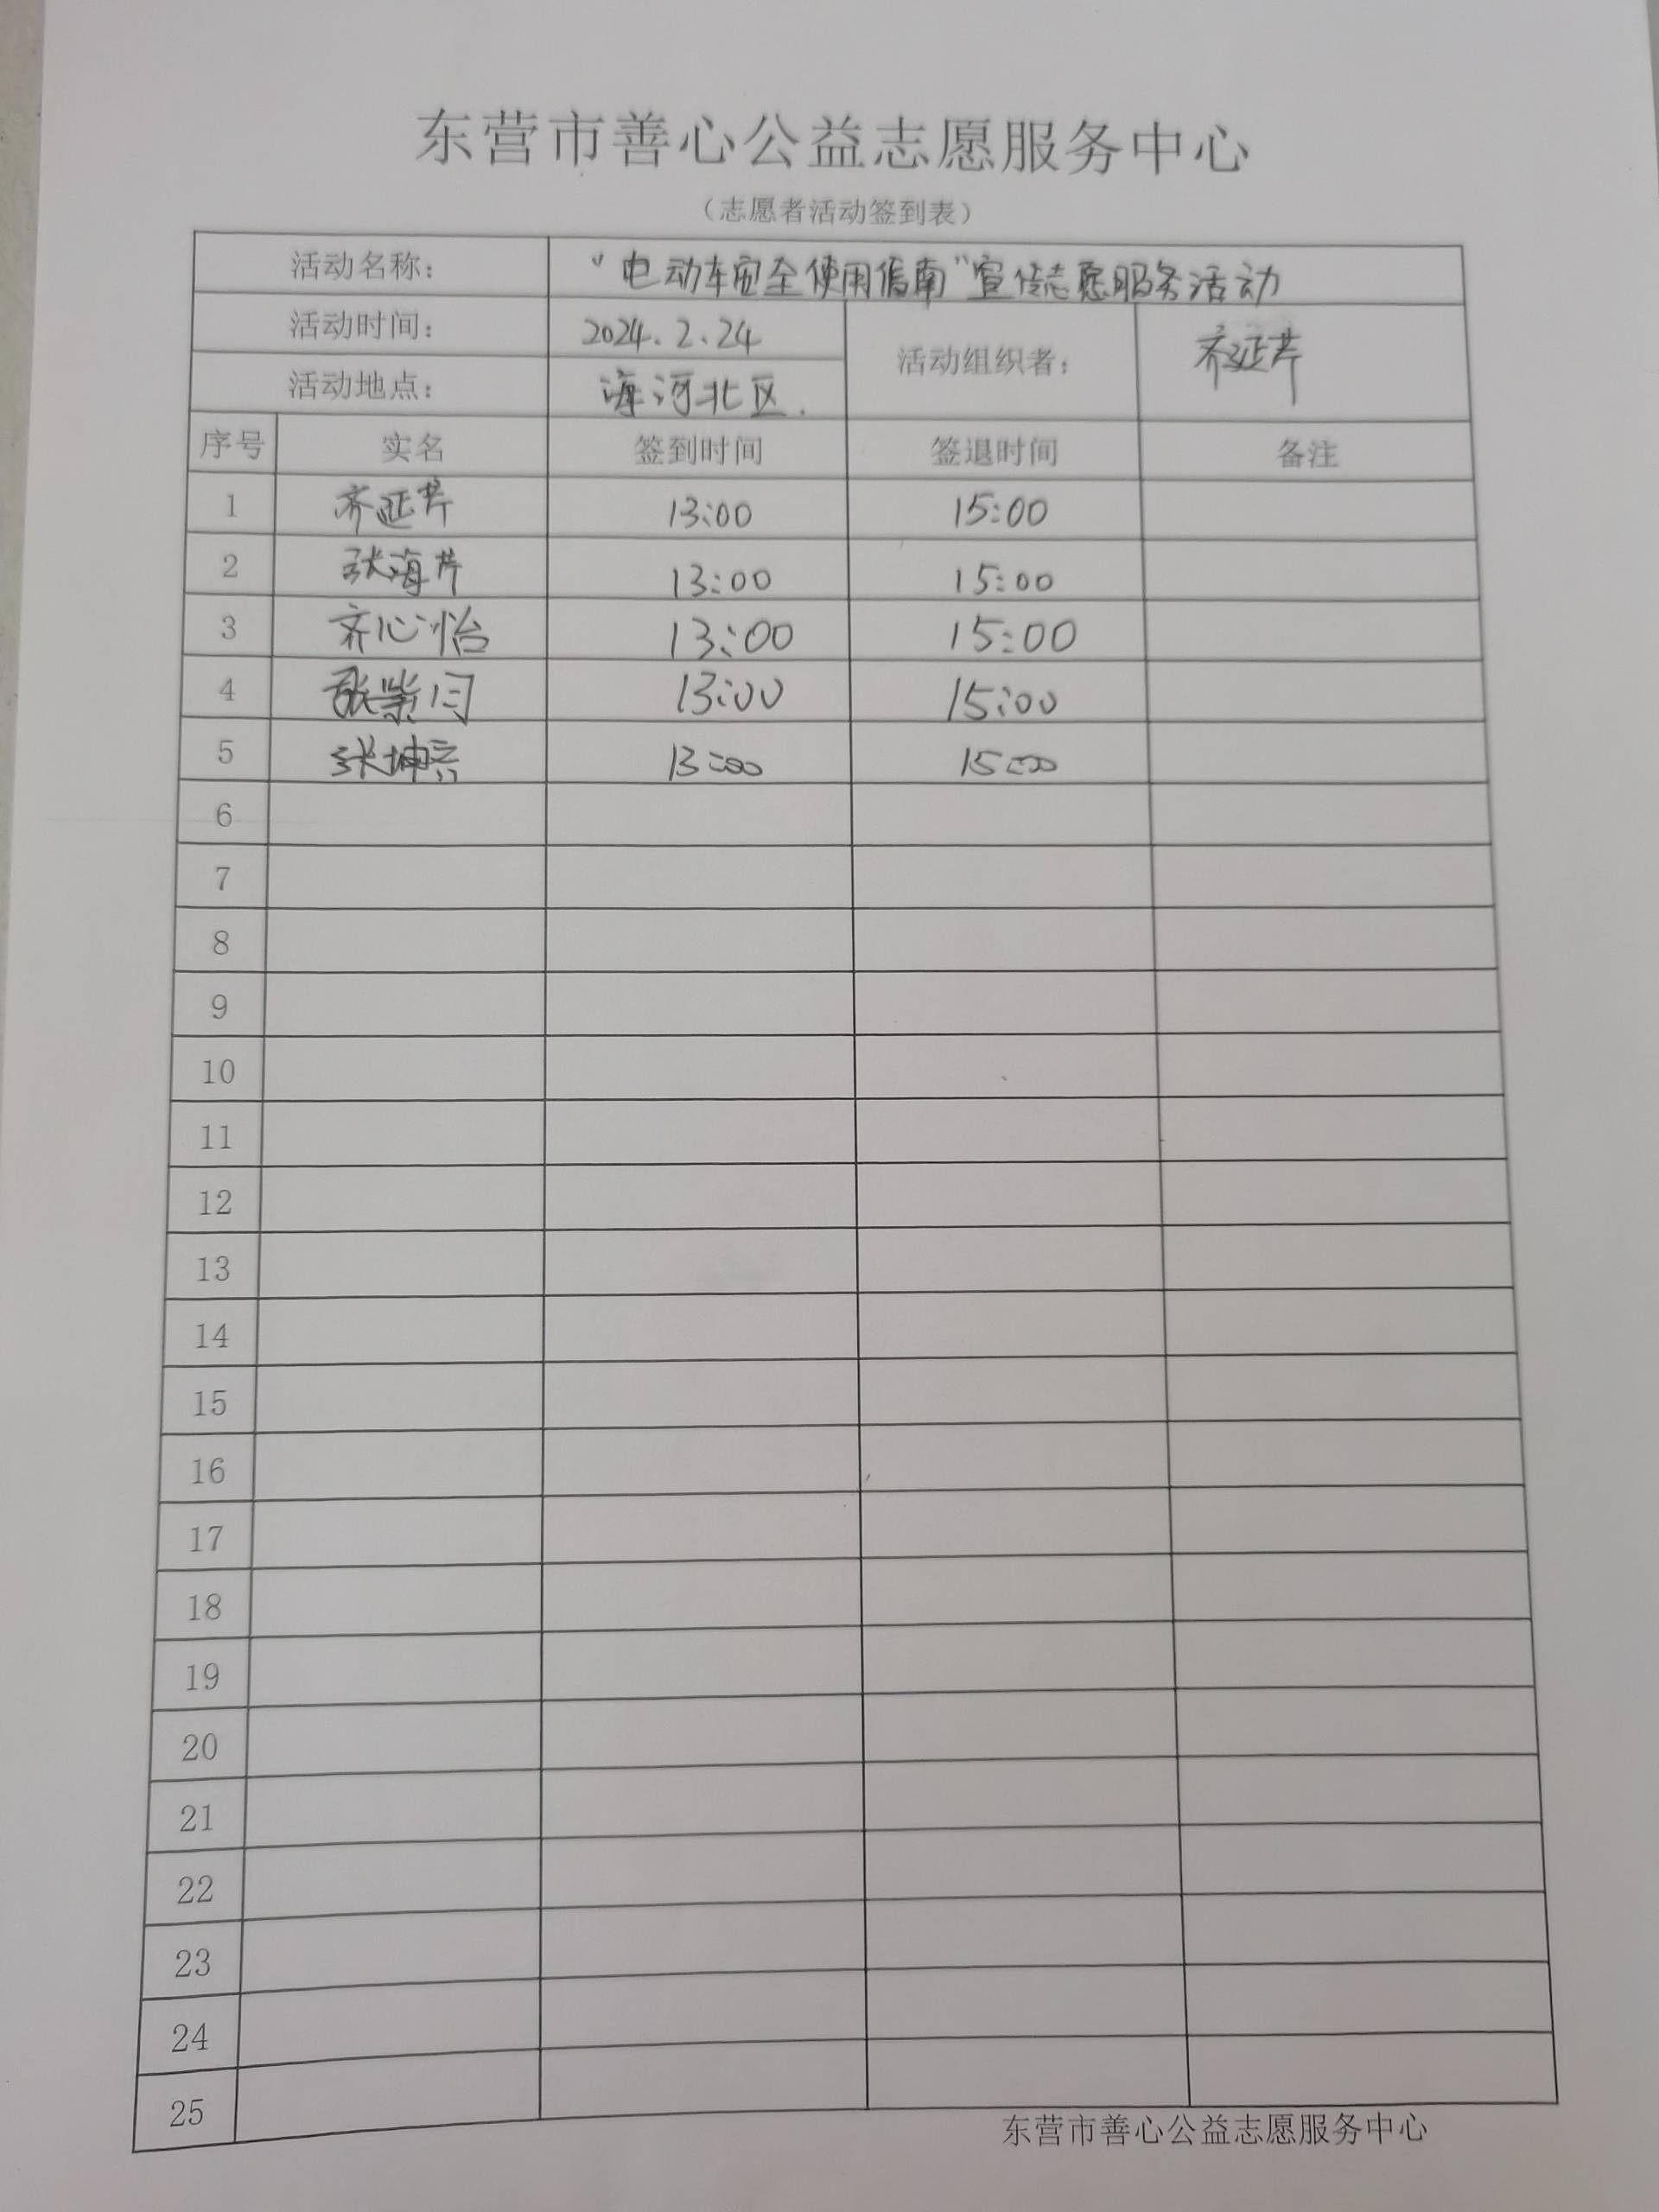 东营市善心公益志愿服务中心
（志愿者活动签到表）
活动名称： “电动车安全使用指南”宣传志愿服务活动
活动时间： 2024.2.24
活动组织者： 齐延芹
活动地点： 海河北区.
序号 实名 签到时间 签退时间 备注
1 齐延芹 13:00 15:00
2 张海芹 13:00 15:00
3 齐心怡 13:00 15:00
4 13:00 15:00
5 13:00 15:00
6
7
8
9
10
11
12
13
14
15
16
17
18
19
20
21
22
23
24
25
东营市善心公益志愿服务中心